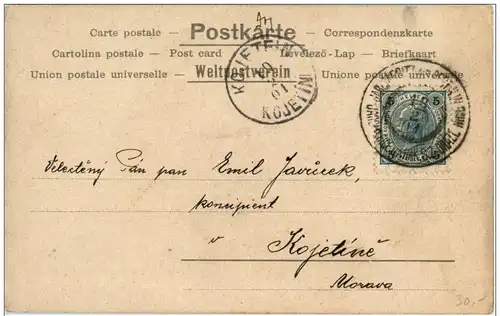 Carte postale — Postkarte — Correspondenzkarte
Cartolina postale — Post card — Levelező-Lap — Briefkaart
Union postale universelle — Weltpostverein — Unione postale universale
KOJETEIN
KOJETÍN
5 5
Velectěný Pán pan Emil Javůrek,
koncipient
v
Kojetíně
Morava
30,-